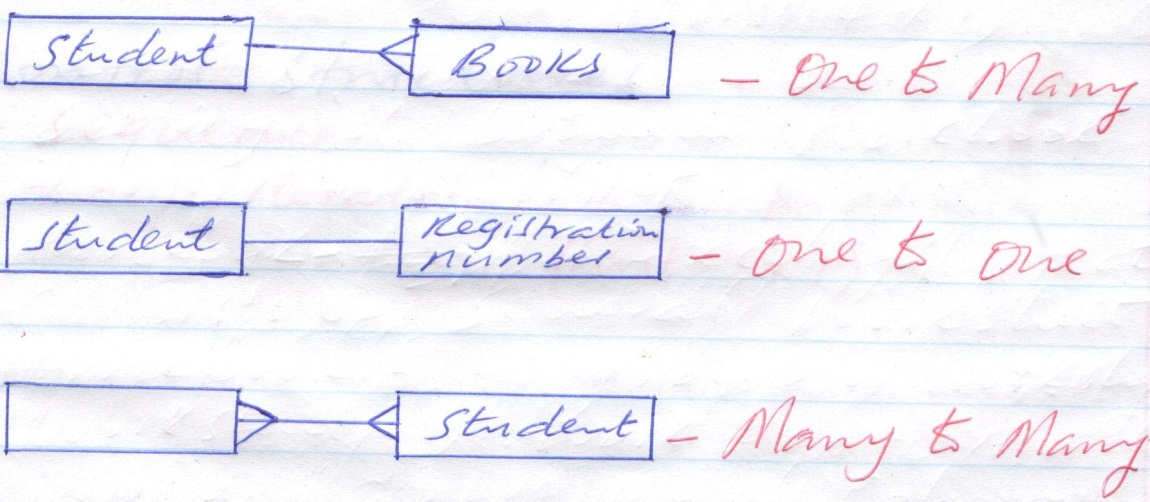 Student
Books
- One to Many
Student
Registration
number
- One to One
Student
- Many to Many